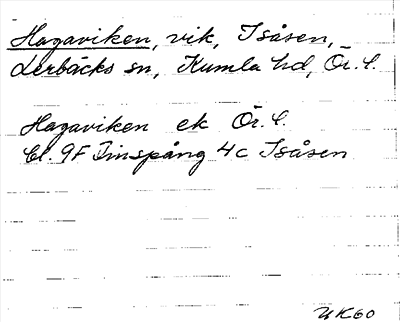 Hagaviken, vik, Isåsen,
Lerbäcks sn, Kumla hd, Ör. l.
Hagaviken ek Ör. l.
Bl. 9F Finspång 4c Isåsen
UK60